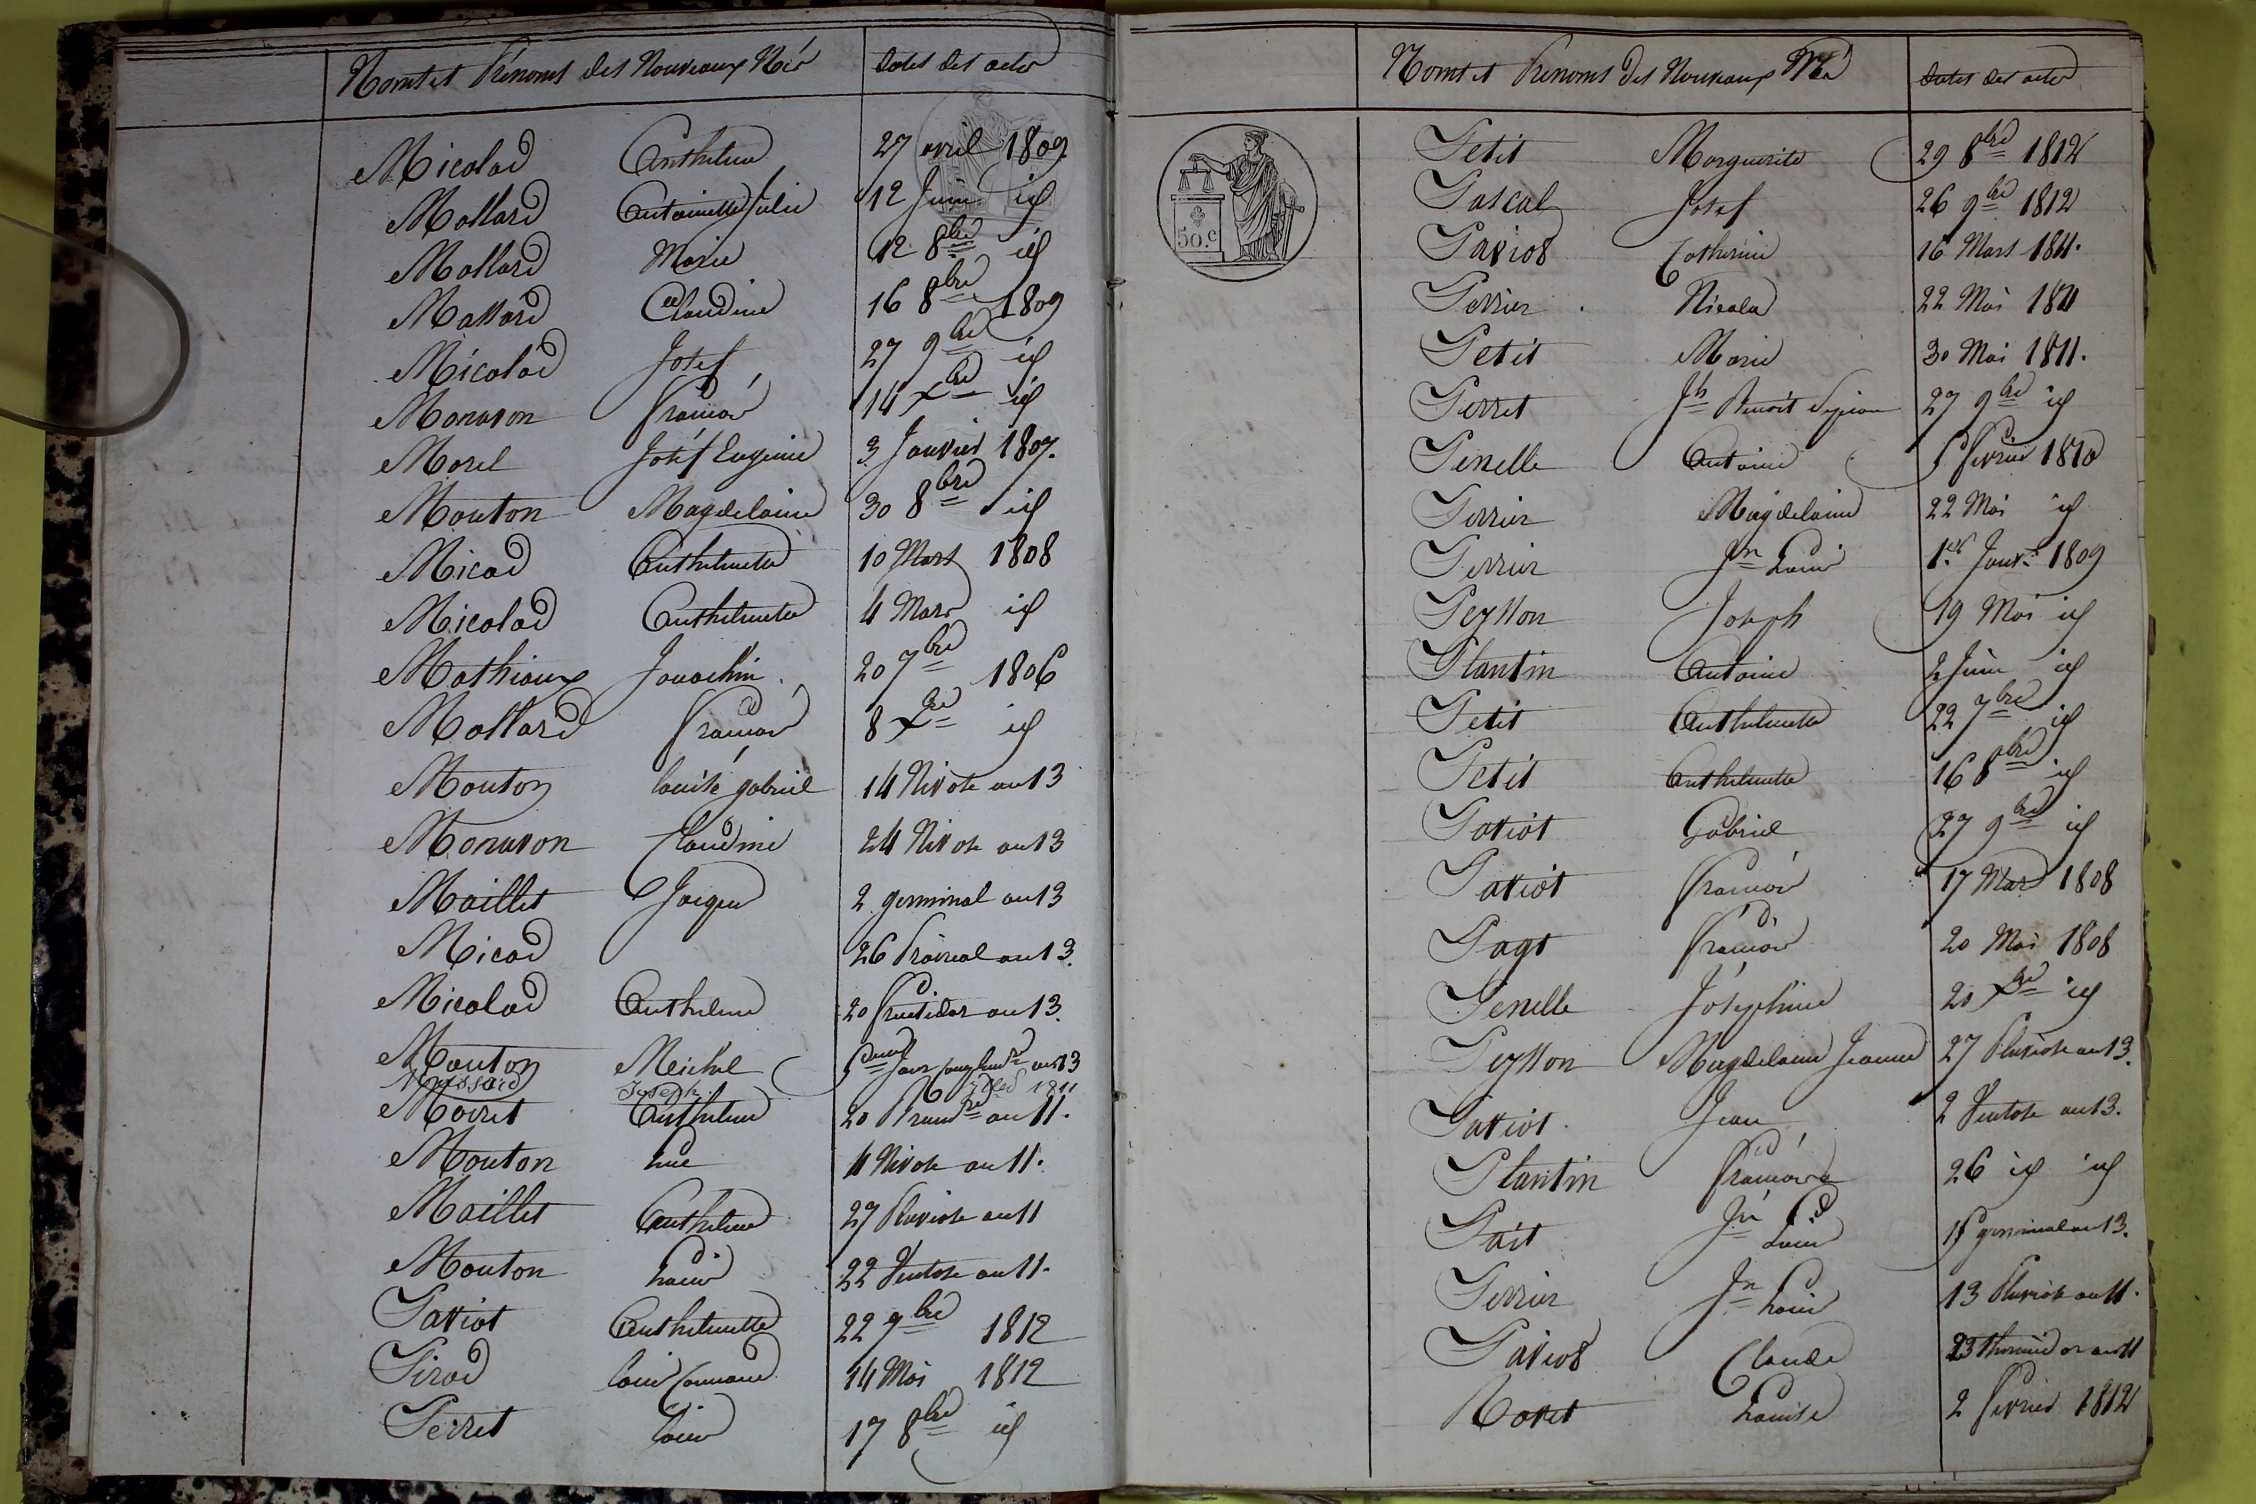 Noms et Prénoms des Nouveaux Nés Dates des actes
Micolad Anthelme 27 avril 1809
Mollard Antoinette Julie 12 Juin id
Mollard Marie 12 8bre id
Mollard Claudine 16 8bre 1809
Micolad Josef 27 9bre id
Monavon François 14 Xbre id
Morel Josef Eugenie 3 Janvier 1807.
Mouton Magdelaine 30 8bre id
Micod Anthelmette 10 Mars 1808
Micolad Anthelmette 4 Mars id
Mathiaux Jouachin 20 7bre 1806
Mollard François 8 Xbre id
Mouton Louise gabriel 14 Nivose an 13
Monavon Claudine 24 Nivose an 13
Maillet Jacques 2 germinal an 13
Micod 26 Prairial an 13.
Micolad Anthelme 20 fructidor an 13.
Mouton Meichel 5me Jour complre an 13
Moussard Joseph 1811
Moiret Anthelme 20 Brumre an 11.
Mouton 4 Nivose an 11.
Maillet Anthelme 27 Pluviose an 11
Mouton Louis 22 Ventose an 11.
Paviot Anthelmette 22 9bre 1812
Pirod Louis 14 Mai 1812
Perret Louis 17 8bre id
Noms et Prénoms des Nouveaux Nés Dates des actes
50.c
Petit Marguerite 29 8bre 1812
Pascal Josef 26 9bre 1812
Paviot Catherine 16 Mars 1811.
Perrier Nicolas 22 Mai 1811
Petit Marie 30 Mai 1811.
Perret Jh Benoit 27 9bre id
Penelle Antoine 5 fevrier 1810
Perrier Magdelaine 22 Mai id
Perrier Jn Louis 1er Janvr 1809
Peysson Joseph 19 Mai id
Plantin Antoine 2 Juin id
Petit Anthelmette 22 7bre id
Petit Anthelmette 16 8bre id
Paviot Gabriel 27 9bre id
Paviot François 17 Mars 1808
Page François 20 Mai 1808
Penelle Joséphine 20 Xbre id
Peysson Magdelaine Jeanne 27 Pluviose an 13.
Paviot Jean 2 Ventose an 13.
Plantin Françoise 26 id id
Jn Louis 15 germinal an 13.
Perrier Jn Louis 13 Pluviose an 11.
Paviot Claude 23 thermidor an 11
Roset Louise 2 fevrier 1812